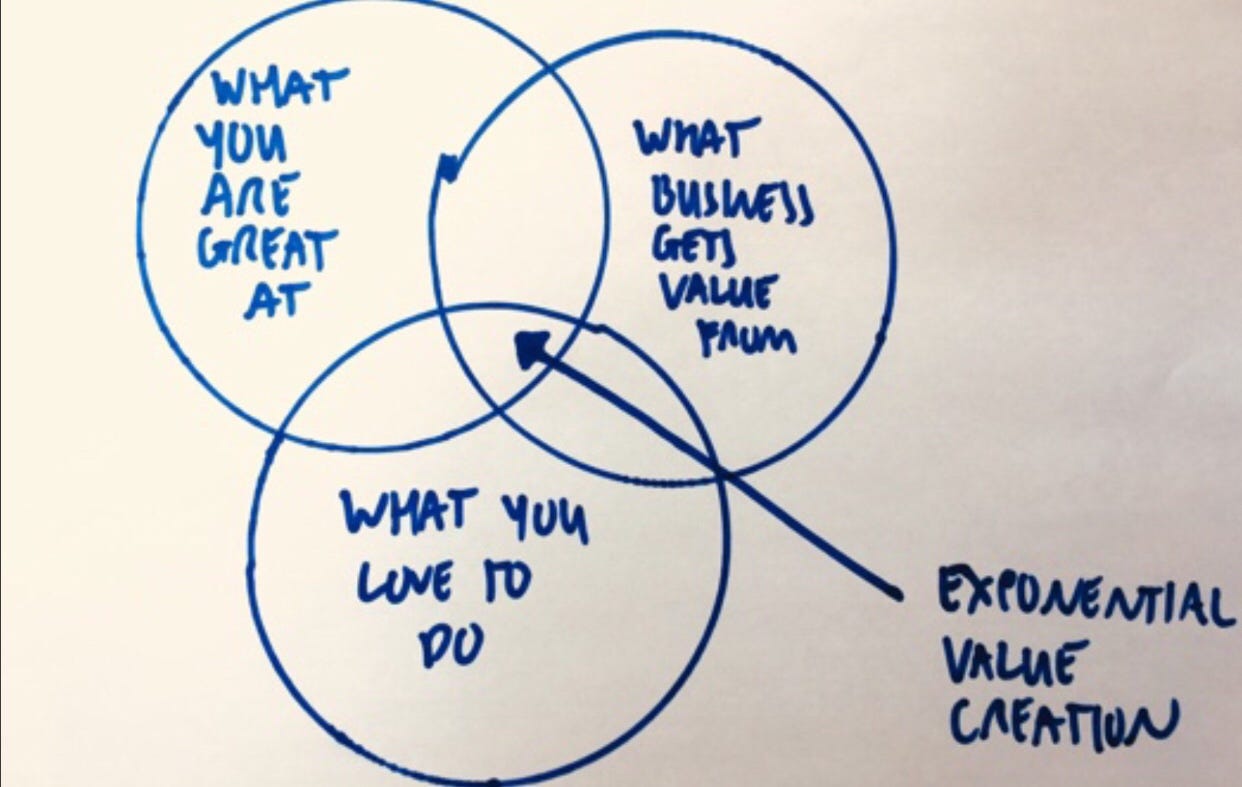 WHAT
YOU
ARE
GREAT
AT
WHAT
BUSINESS
GETS
VALUE
FROM
WHAT YOU
LOVE TO
DO
EXPONENTIAL
VALUE
CREATION